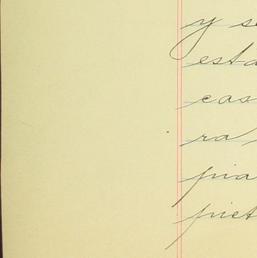 y se
esta
cas
ra
pia
piet